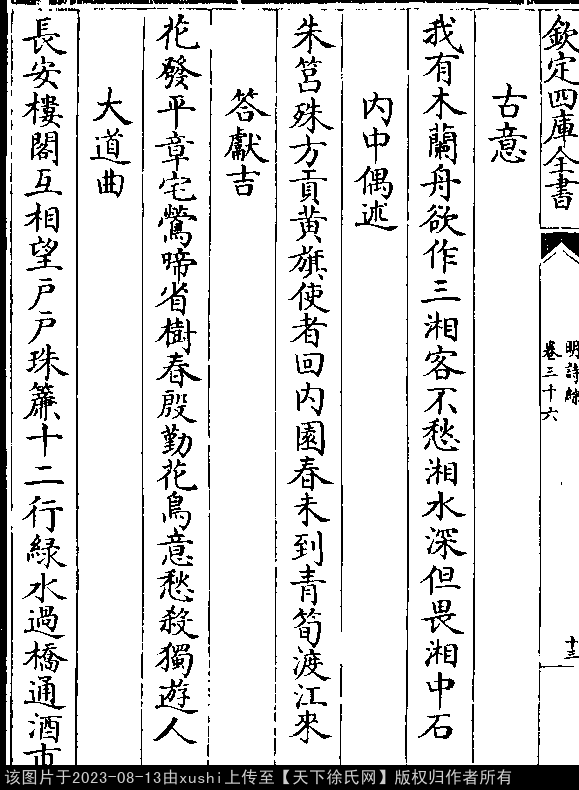 欽定四庫全書
明詩綜
卷三十六
十三
古意
我有木蘭舟欲作三湘客不愁湘水深但畏湘中石
内中偶述
朱筥殊方貢黄旗使者回内園春未到青筍渡江來
答獻吉
花發平章宅鶯啼省樹春殷勤花鳥意愁殺獨遊人
大道曲
長安樓閣互相望戸戸珠簾十二行緑水過橋通酒市
该图片于2023-08-13由xushi上传至【天下徐氏网】版权归作者所有